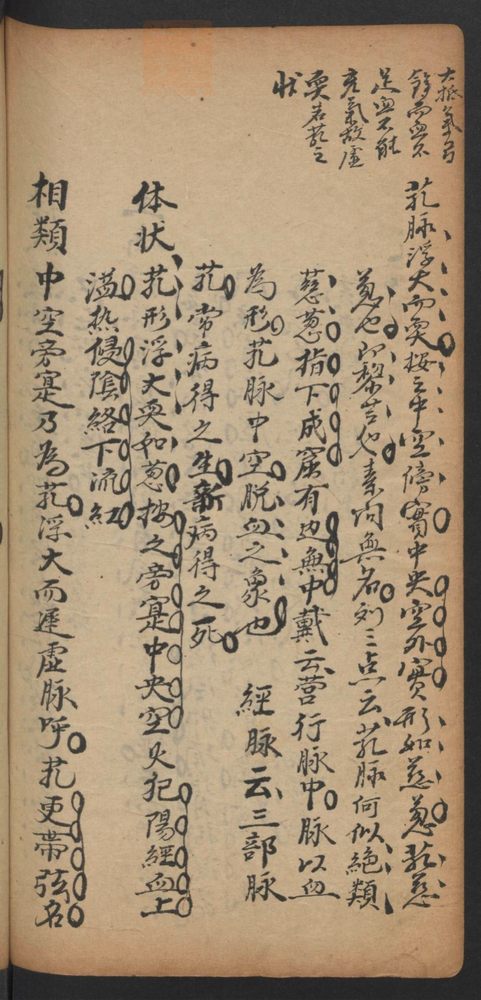 大抵氣有
餘而血不
足血不能
充氣故虛
耎若芤之
状
芤脉浮大而耎按之中空傍實中央空外實形如慈葱芤慈
葱也即藜芦也素問無名刘三点云芤脉何似絶類
慈葱指下成窟有边無中戴云营行脉中脉以血
為形芤脉中空脱血之象也 經脉云三部脉
芤常病得之生新病得之死
体状芤形浮大耎如葱按之旁寔中央空火犯陽經血上
溢热侵陰絡下流紅
相類中空旁寔乃為芤浮大而遲虚脉呼芤更帶弦名